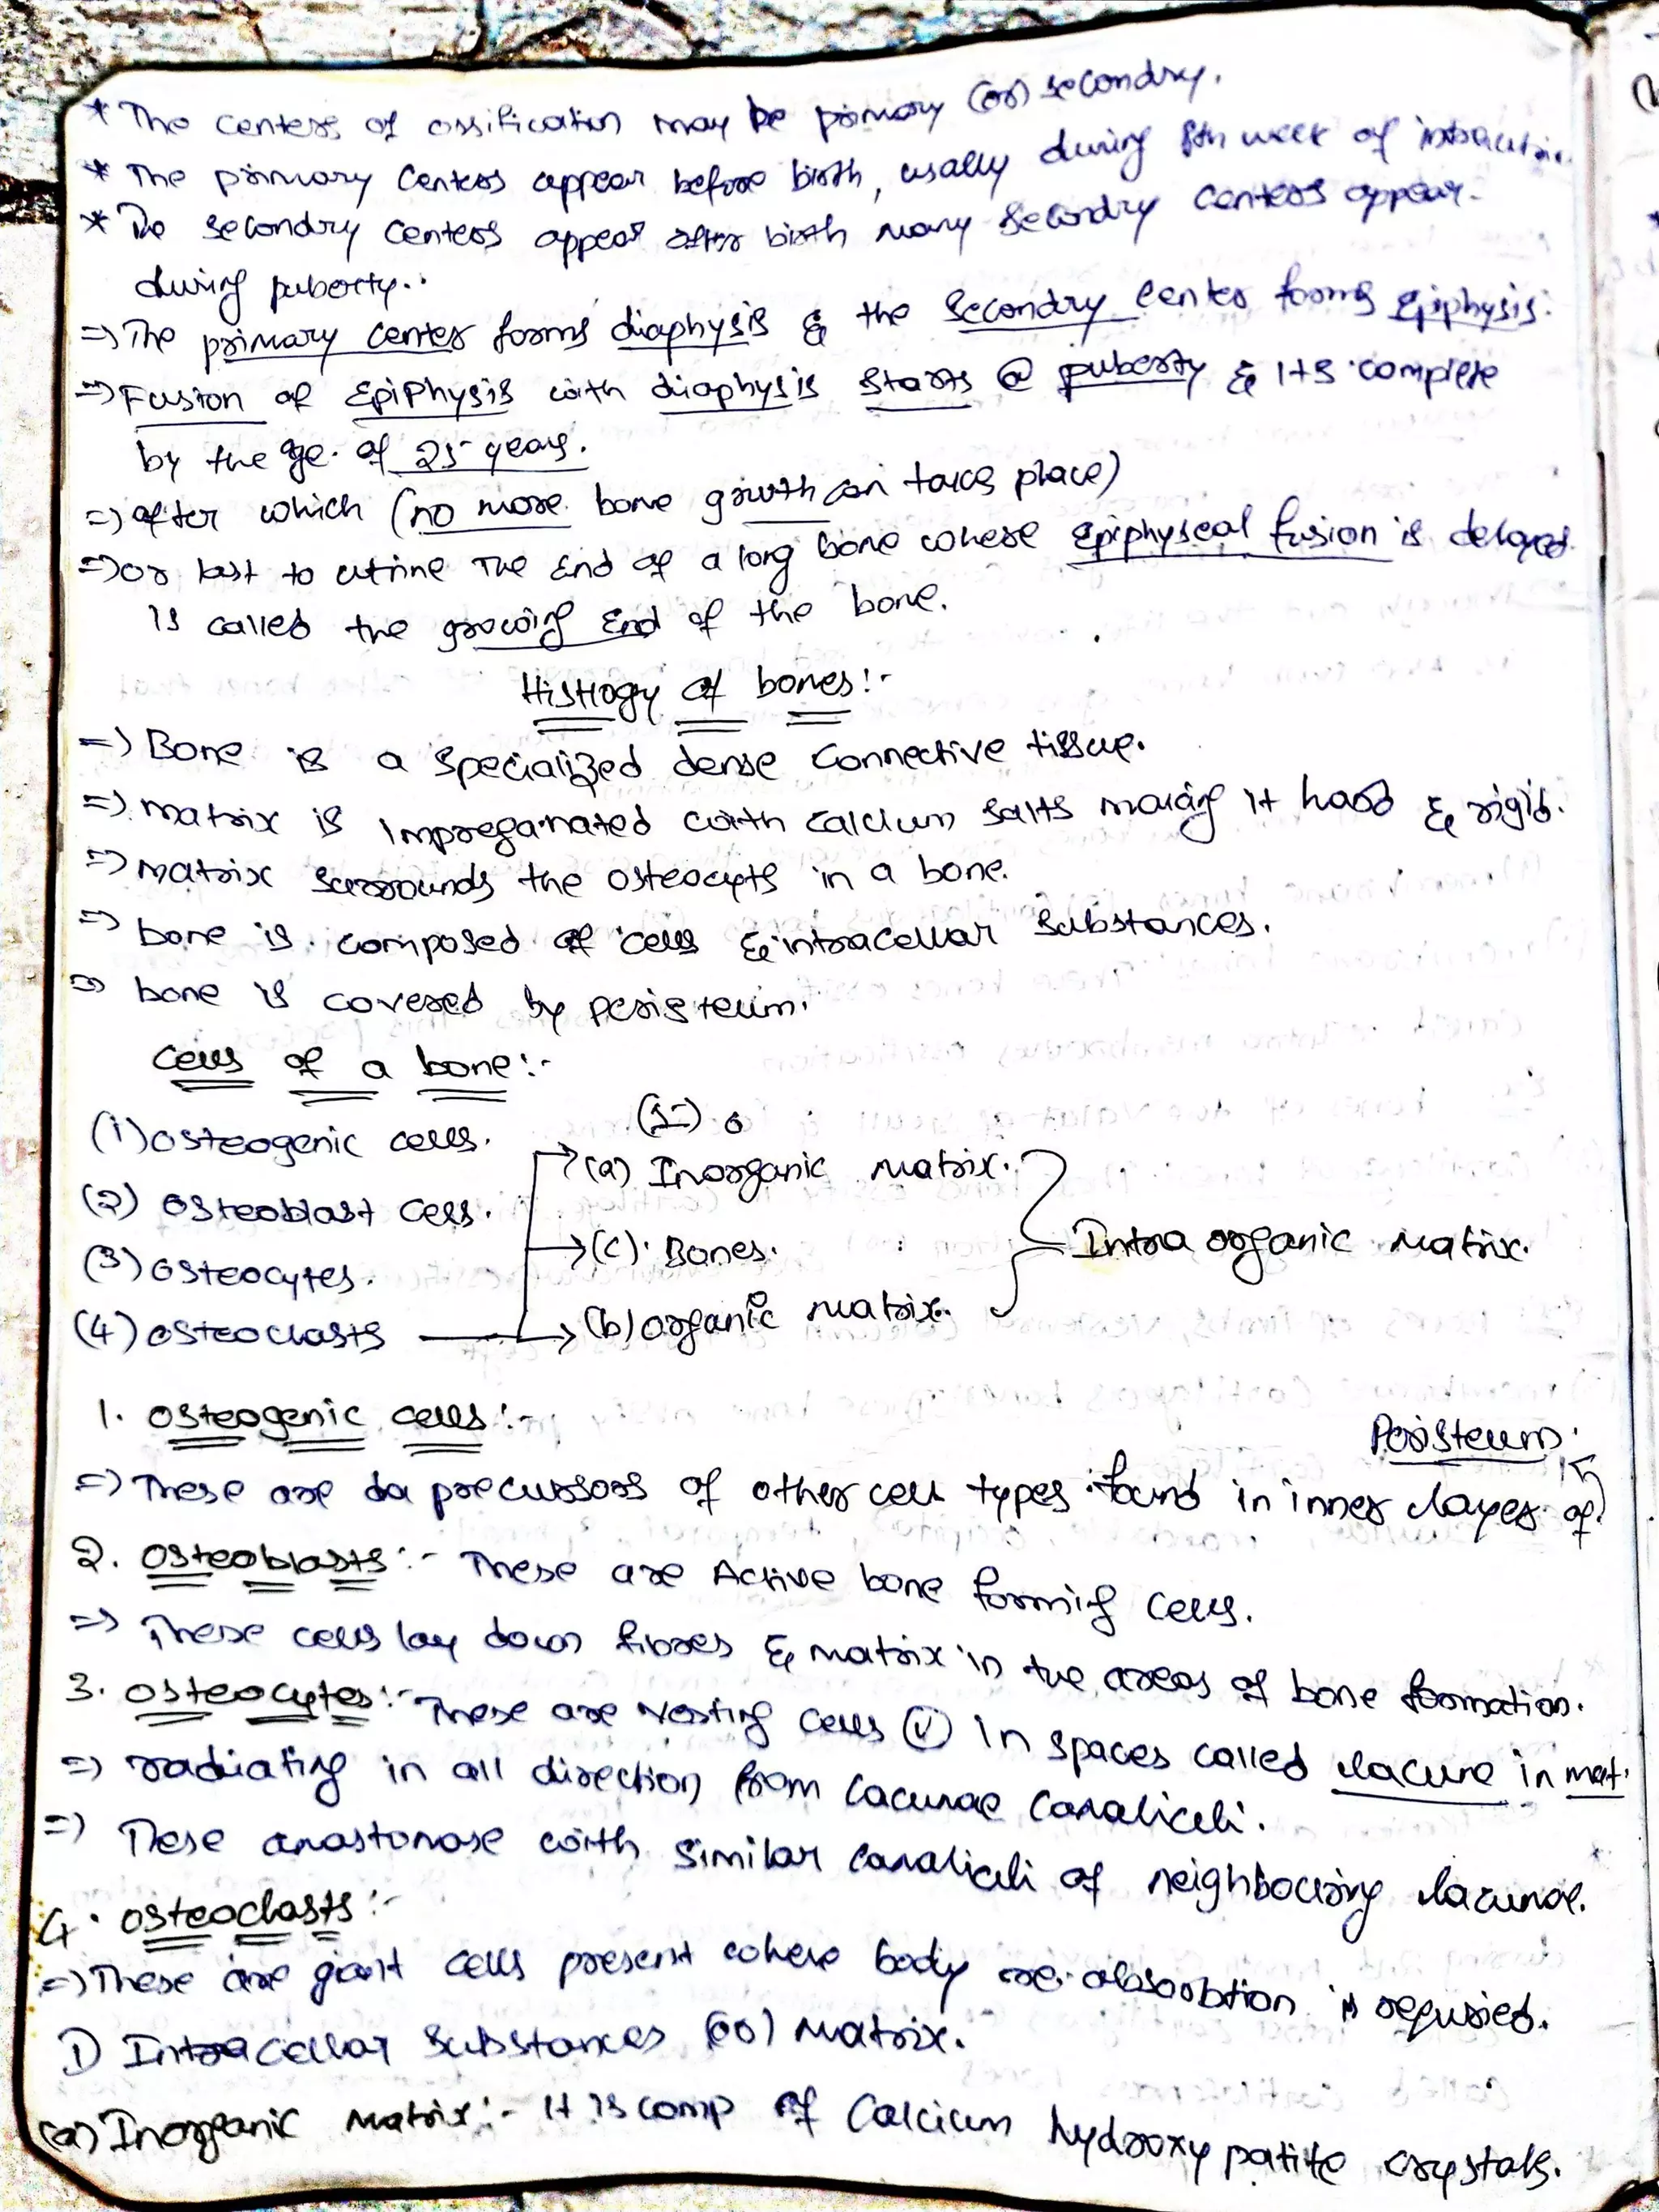 * The centers of ossification may be primary (or) secondry.
* The primary centers appear before birth, usally during 8th week of intrauterine
* The secondry centers appear after birth many secondry centers appear.
during puberty..
=> The primary center forms diaphysis & the secondry center forms Epiphysis.
=> Fusion of Epiphysis with diaphysis starts @ puberty & its complete
by the age of 25 years.
=> after which (no more bone growth can takes place)
=> or last to utrine The End of a long bone where epiphyseal fusion is delayed
Is called the growing End of the bone.
Histlogy of bones:-
=> Bone is a specialized dense connective tissue.
=> matrix is impreganated with calcium salts making it hard & rigid.
=> matrix surrounds the osteocyts in a bone.
=> bone is composed of cells & intracellar substances.
=> bone is covered by peristeum.
Cells of a bone:-
(1) osteogenic cells.
(2) osteoblast cells.
(3) osteocytes.
(4) osteoclasts
(a) Inorganic matrix.
(c). Bones.
(b) organic matrix.
Intra organic matrix.
1. osteogenic cells:-
Peristeum.
=> These are da precussors of other cell types found in inner layer of
2. osteoblasts:- These are Active bone forming cells.
=> These cells lay down fibres & matrix in the areas of bone formation.
3. osteocytes:- These are resting cells in spaces called lacune in mat.
=> radiating in all direction from lacunae canaliculi.
=> These anastomose with similar canaliculi of neighbouring lacunae.
4. osteoclasts:-
=> These are giant cells present where body re-absorbtion is requried.
1) Intracellar substances (or) matrix.
(a) Inorganic matrix:- It is comp of calcium hydroxy patite crystals.